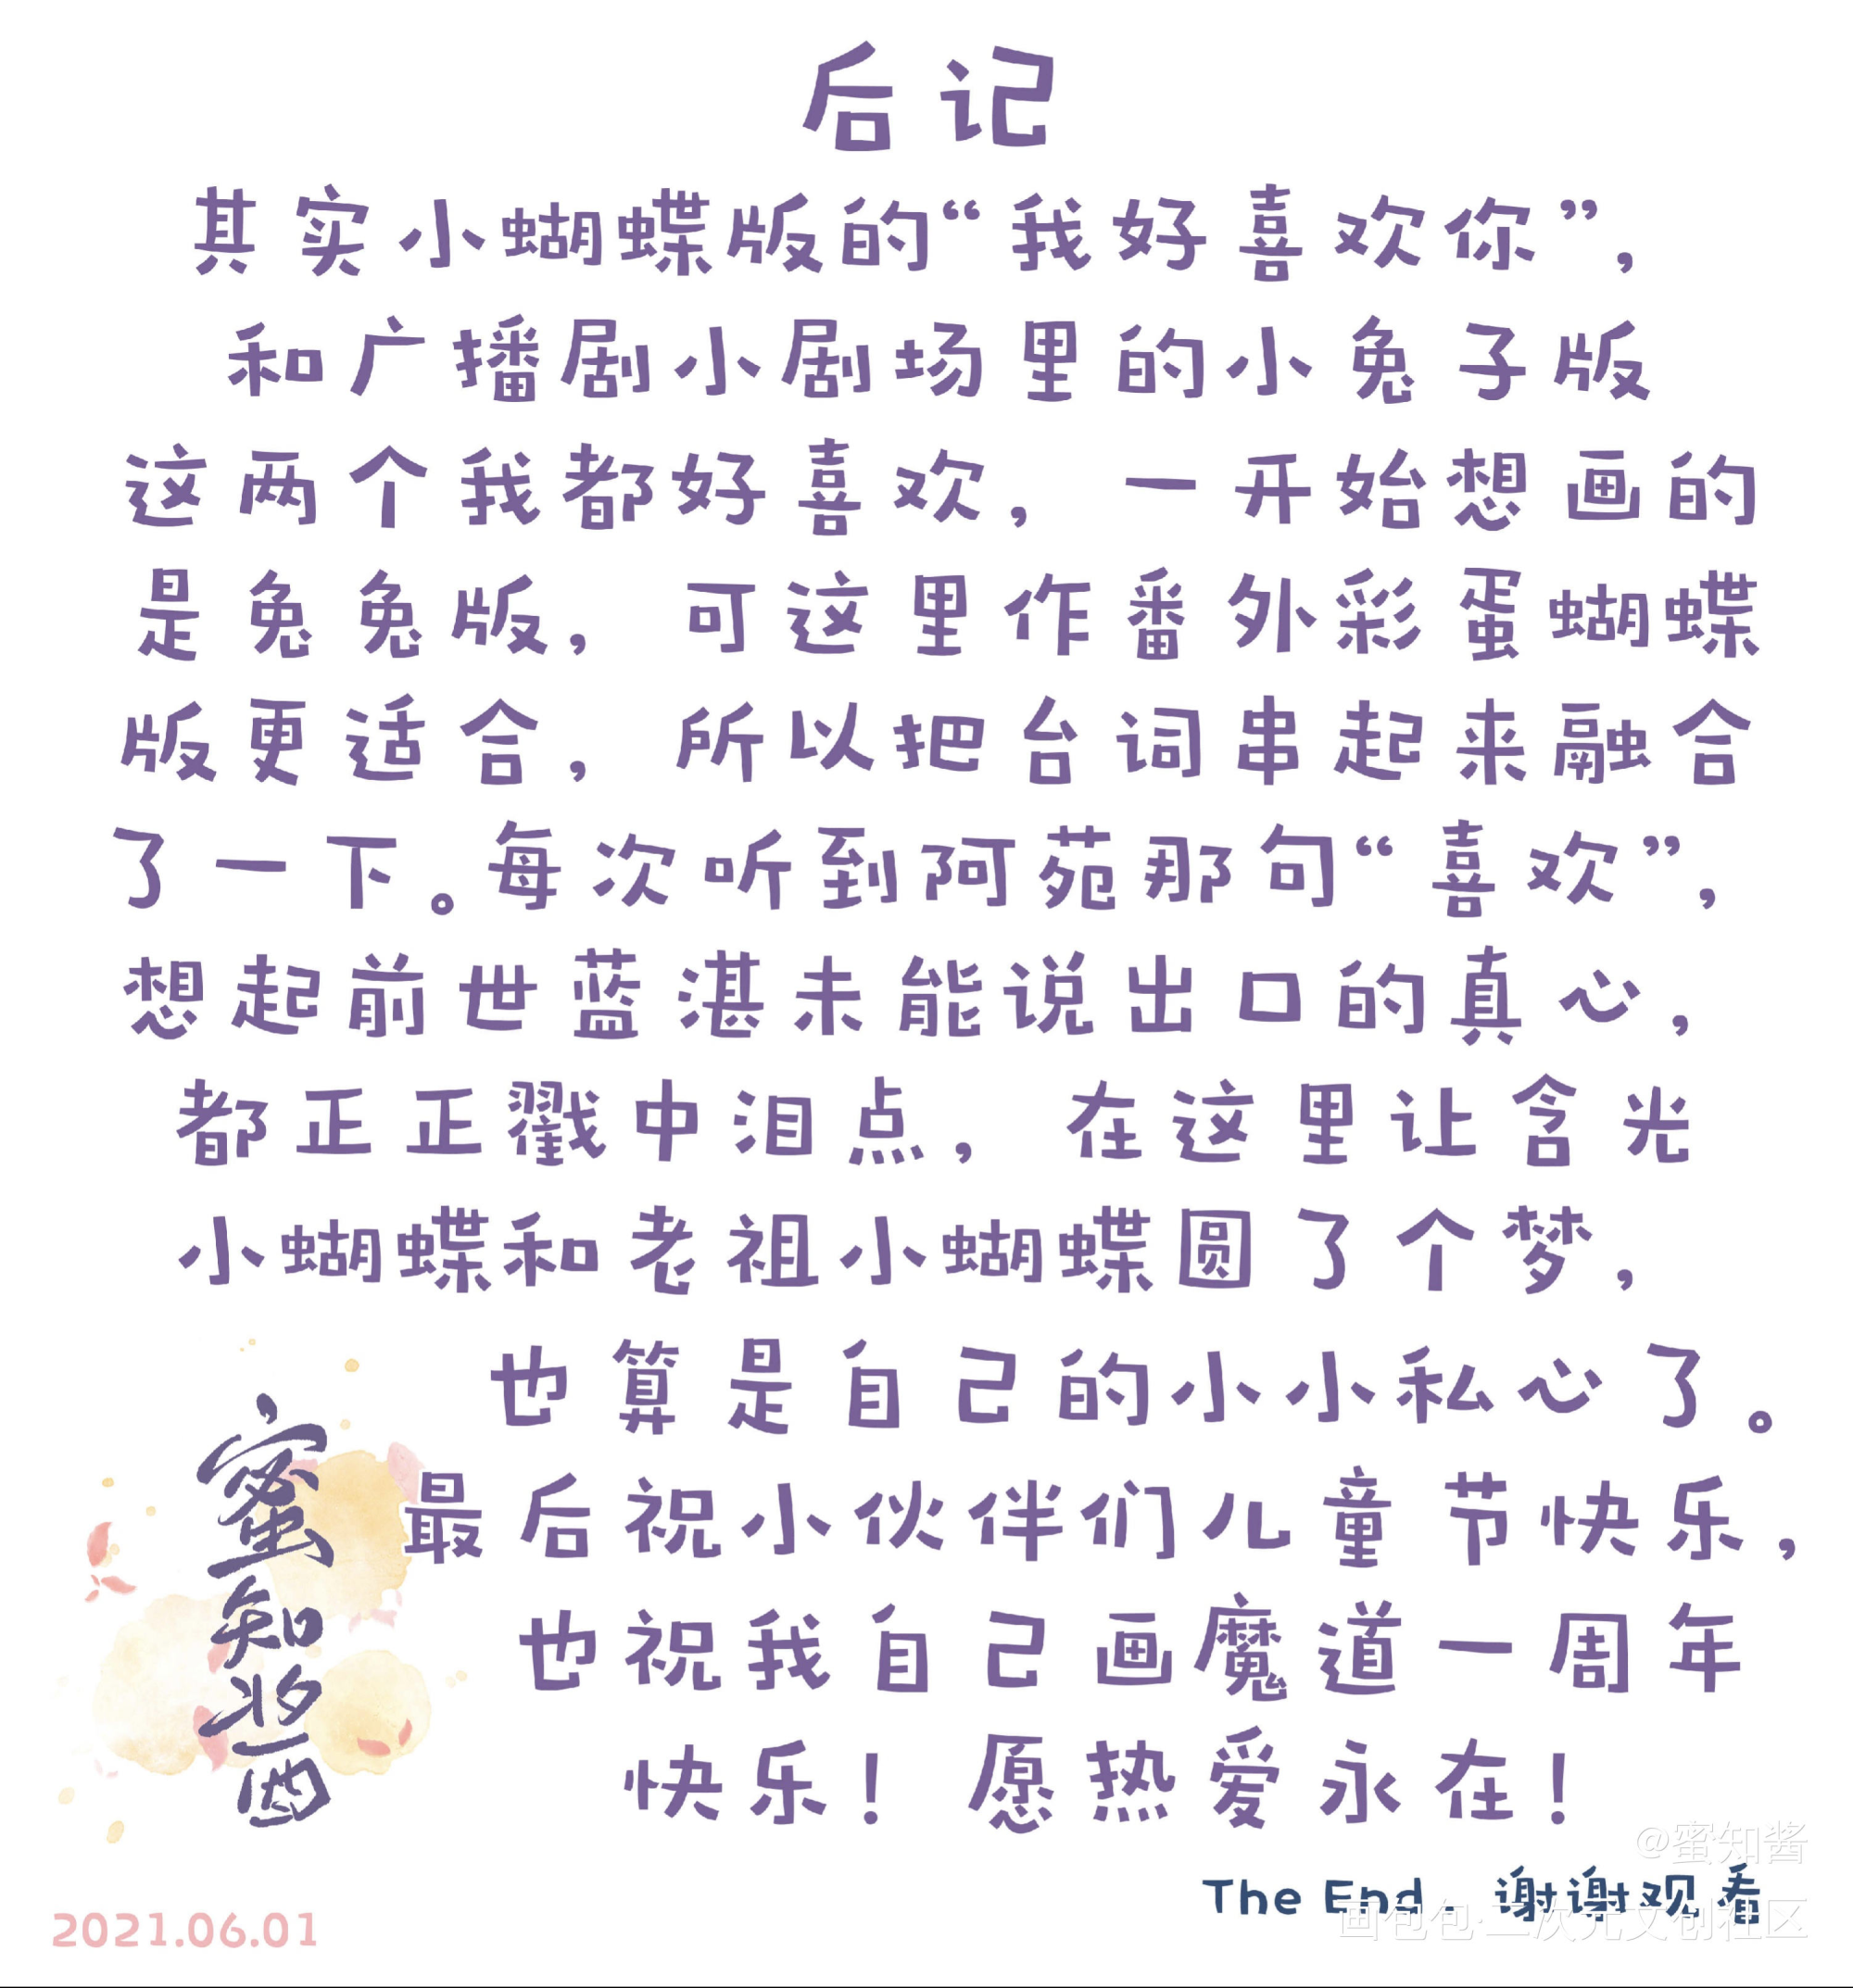 后记
其实小蝴蝶版的“我好喜欢你”，
和广播剧小剧场里的小兔子版
这两个我都好喜欢，一开始想画的
是兔兔版，可这里作番外彩蛋蝴蝶
版更适合，所以把台词串起来融合
了一下。每次听到阿苑那句“喜欢”，
想起前世蓝湛未能说出口的真心，
都正正戳中泪点，在这里让含光
小蝴蝶和老祖小蝴蝶圆了个梦，
也算是自己的小小私心了。
最后祝小伙伴们儿童节快乐，
也祝我自己画魔道一周年
快乐！愿热爱永在！
蜜知酱
@蜜知酱
The End. 谢谢观看
画包包·二次元文创社区
2021.06.01